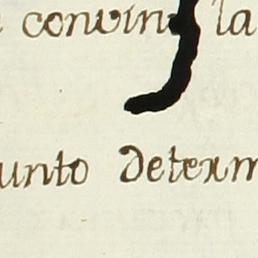 convin la
unto determ